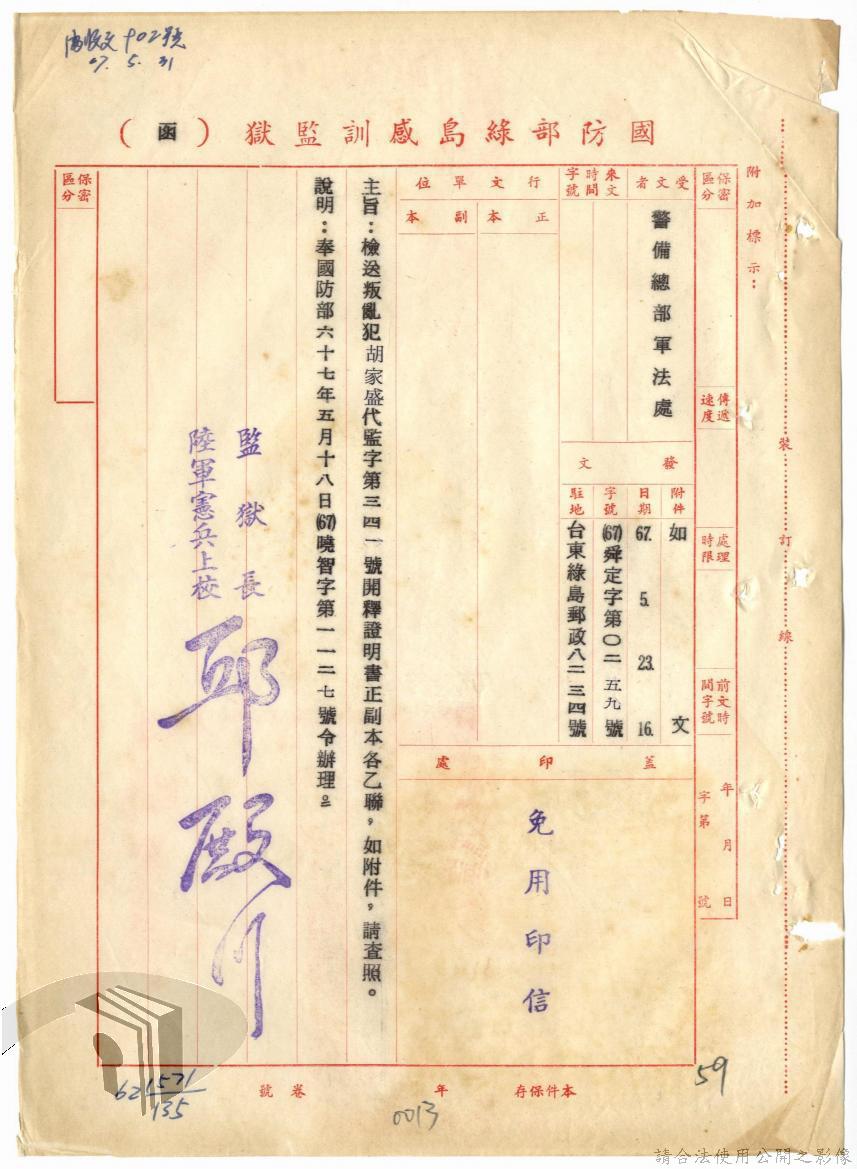 67. 5. 31
國防部綠島感訓監獄（函）
附加標示：
裝訂線
保密區分
傳遞速度
處理時限
前文時間字號
年月日
字第號
受文者
警備總部軍法處
來文時間字號
發文
附件
如文
日期
67. 5. 23. 16.
字號
(67)舜定字第〇二五九號
駐地
台東綠島郵政八二三四號
行文單位
正本
副本
蓋印處
免用印信
主旨：檢送叛亂犯胡家盛代監字第三四一號開釋證明書正副本各乙聯，如附件，請查照。
說明：奉國防部六十七年五月十八日(67)曉智字第一一二七號令辦理。
監獄長
陸軍憲兵上校
邱殿川
保密區分
本件保存年
卷號
59
0013
621571
135
請合法使用公開之影像